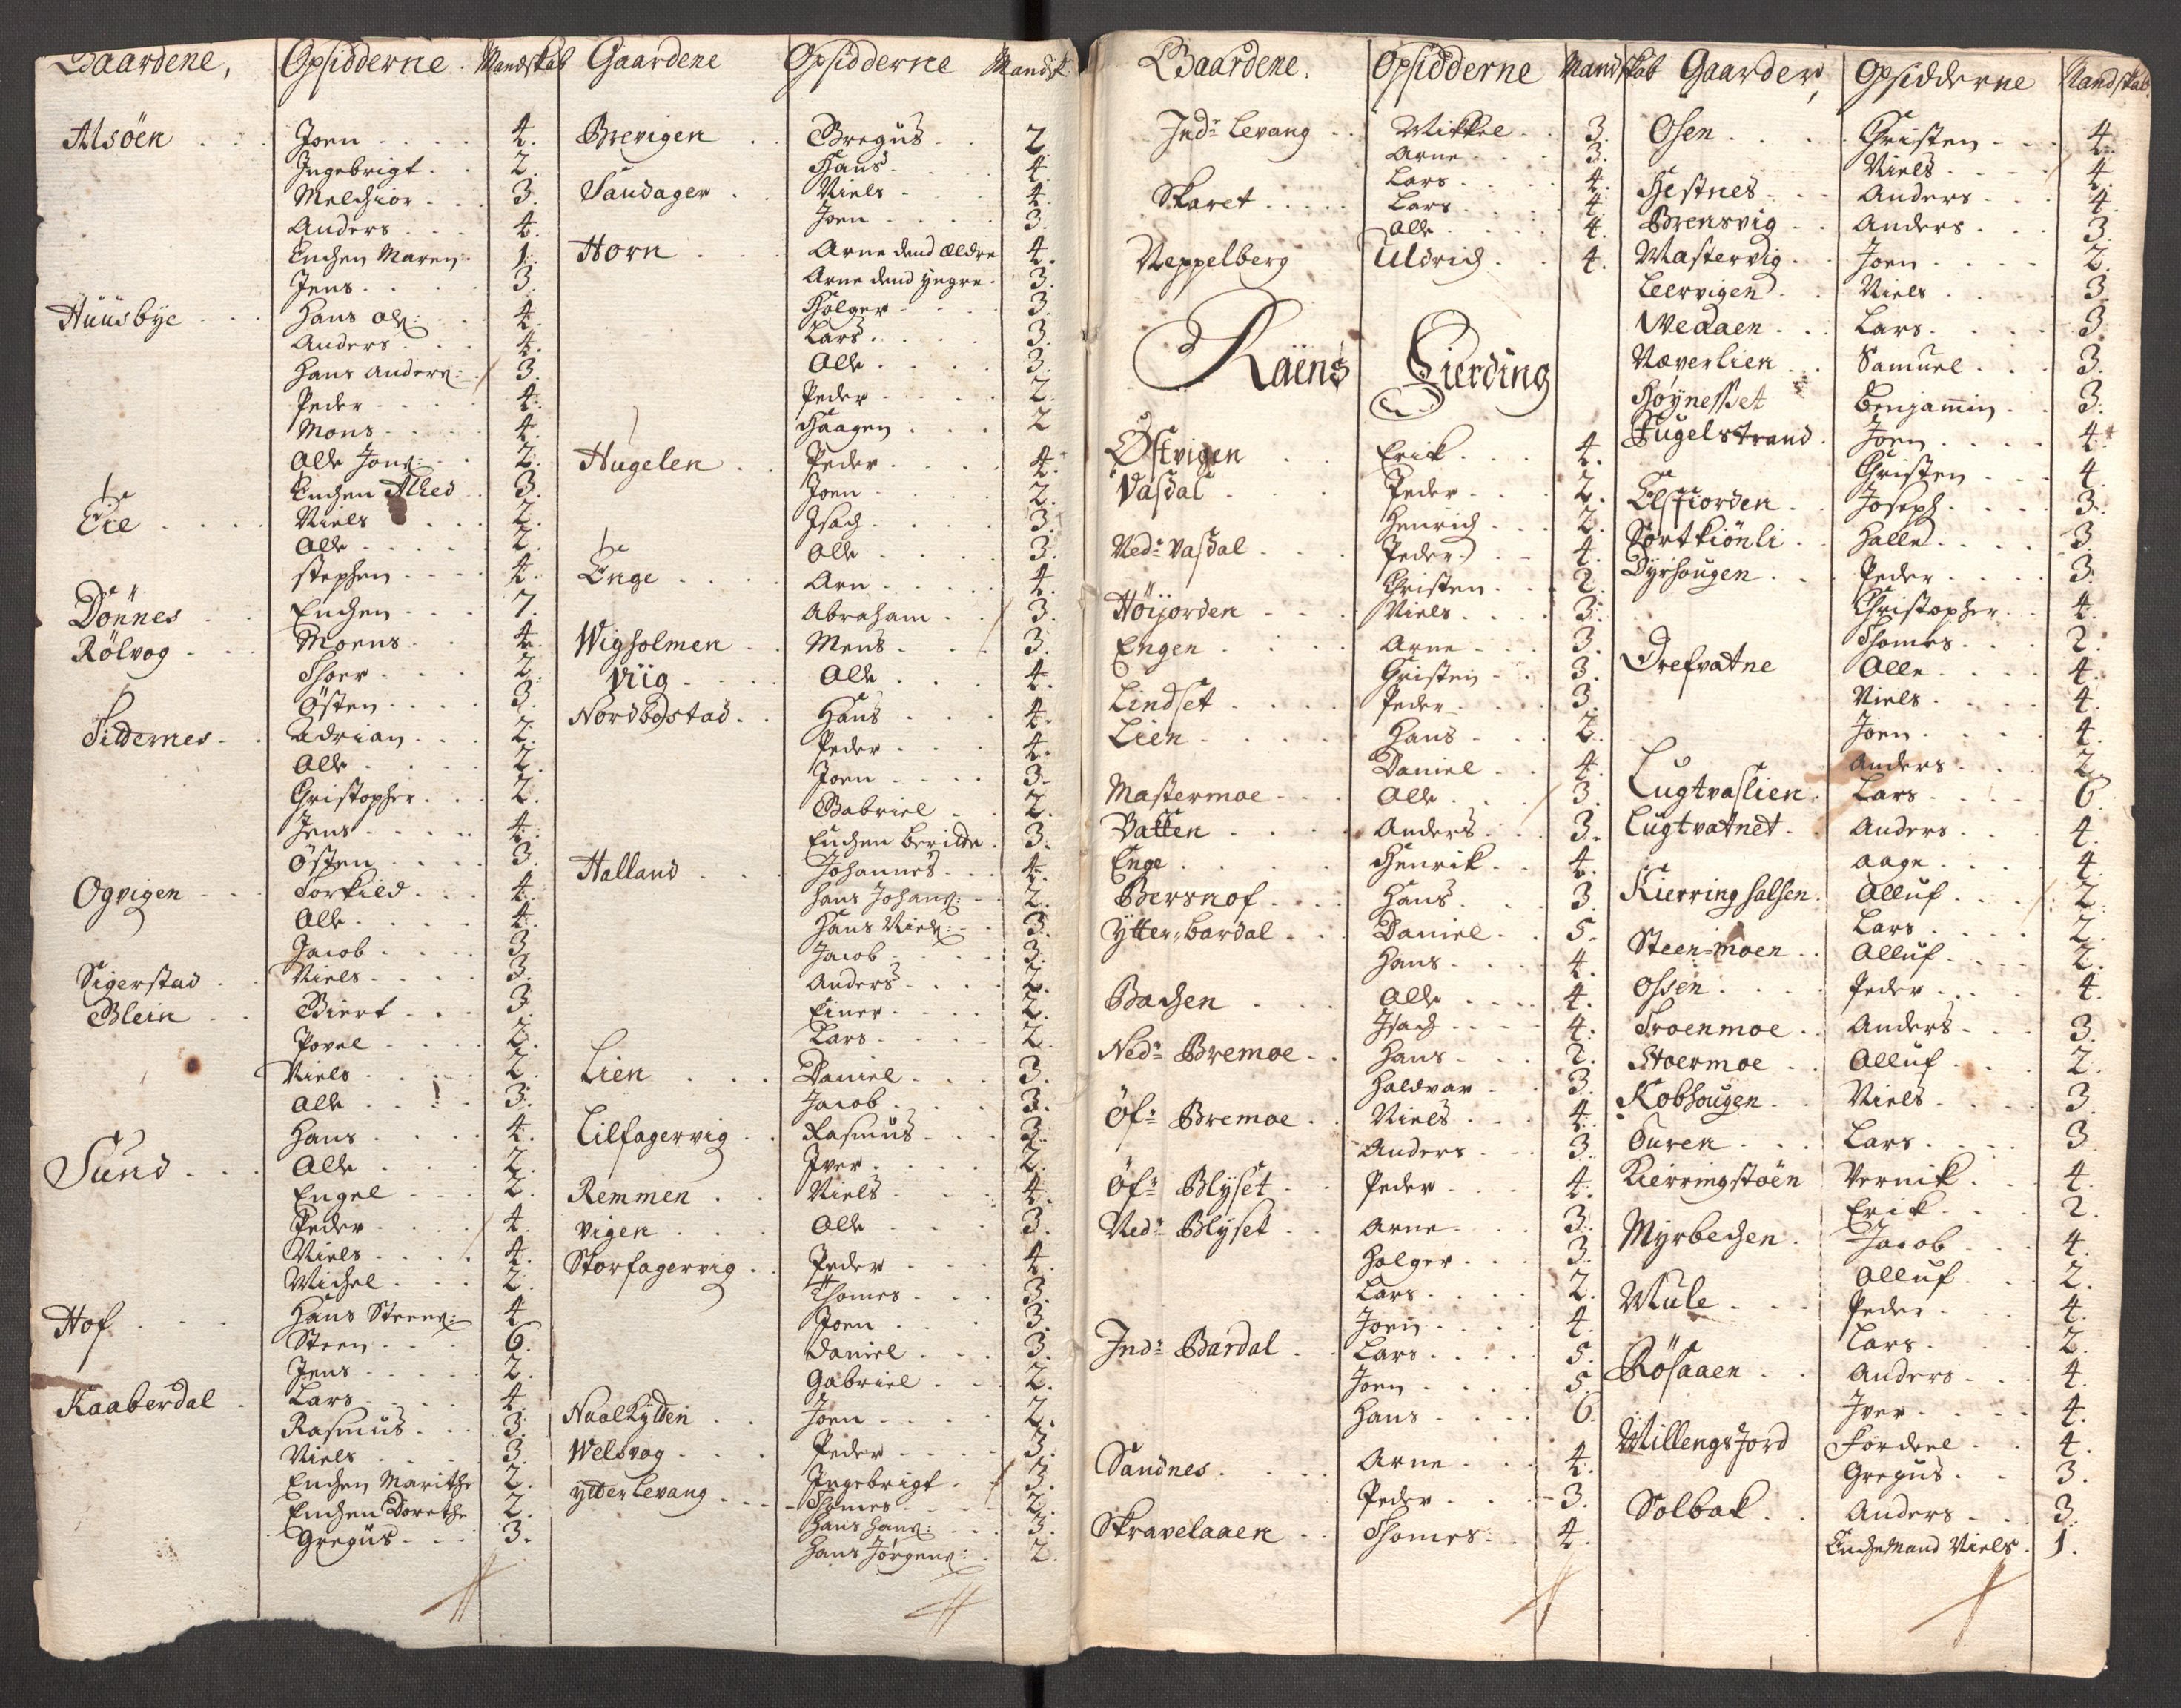 Gaardene, Opsidderne. Mandskab
Alsöen Joen 4.
Ingebrigt 2.
Melchior 3.
Anders 4.
Enchen Maren 1.
Jens 3.
Huusbye Hans Ols: 4.
Anders 4.
Hans Anders: 3.
Peder 4.
Mons 4.
Olle Jons: 2.
Enchen Alhed 3.
Eie Niels 2.
Olle 2.
Stephen 4.
Dönnes Enchen 7.
Rölvog Moens 4.
Thoer 2.
Östen 3.
Sildernes Adrian 2.
Olle 2.
Christopher 2.
Jens 4.
Östen 3.
Ogvigen Torkild 4.
Olle 4.
Jacob 3.
Sigerstad Niels 3.
Blein Biert 3.
Povel 2.
Niels 2.
Olle 3.
Hans 4.
Sund Olle 2.
Engel 2.
Peder 4.
Niels 4.
Michel 2.
Hof Hans Steens: 4
Steen 6.
Jens 2.
Kaaberdal Lars 4.
Rasmus 3.
Niels 3.
Enchen Marithe 2.
Enchen Dorethe 2.
Gregus 3.
Gaardene Opsidderne Mandsk
Brevigen Gregus 2
Hans 4.
Sandager Niels 4.
Joen 3.
Horn Arne dend Ældre 4.
Arne dend yngre 3.
Holger 3.
Lars 3.
Olle 3.
Peder 2.
Haagen 2
Hugelen Peder 4.
Joen 2.
Isach 3.
Olle 3.
Enge Arn 4.
Abraham 3.
Wigholmen Mons 3.
Viig Olle 4.
Nordbostad Hans 4.
Peder 4.
Joen 3.
Gabriel 2.
Enchen Berilde 3.
Halland Johannes 4.
Hans Johans: 2.
Hans Niels: 3.
Jacob 3.
Anders 2.
Einer 2.
Lars 2.
Lien Daniel 3.
Jacob 3.
Lilfagervig Rasmus 3.
Iver 2.
Remmen Niels 4.
Vigen Olle 3.
Storfagervig Peder 4.
Thomes 3.
Joen 3.
Daniel 3.
Gabriel 2.
Naalkylden Joen 2.
Welsvog Peder 3.
Ytter Levang Ingebrigt 3.
Thomes 2.
Hans Hans: 3.
Hans Jörgens: 2.
Gaardene. Opsidderne Mandskab
Indr Levang Mikkel 3.
Arne 3.
Lars 4.
Skaret Lars 4.
Olle 4.
Neppelberg Uldrich 4.
Raëns Fierding
Østvigen Erik 4.
Vasdal Peder 2.
Henrich 2.
Nedr Vasdal Peder 4.
Christen 2.
Höijorden Niels 3.
Engen Arne 3.
Christen 3.
Lindset Peder 3.
Lien Hans 2.
Daniel 4.
Mastermoe Olle 3.
Vatten Anders 3.
Enge Henrik 4.
Bersnof Hans 3.
Ytter Bardal Daniel 5.
Hans 4.
Bachen Olle 4.
Isach 4.
Nedr Bremoe Hans 2.
Haldvar 3.
Öfr Bremoe Niels 4.
Anders 3.
Öfr Blyset Peder 4.
Nedr Blyset Arne 3.
Holger 3.
Lars 2.
Joen 4.
Indr Bardal Lars 5.
Joen 5.
Hans 6.
Sandnes Arne 4.
Peder 3.
Skravelaaen Thomes 4.
Gaarder, Opsidderne Mandskab.
Osen Christen 4.
Niels 4.
Hestnes Anders 4.
Brensvig Anders 3.
Mastervig Joen 2.
Leervigen Niels 3.
Wedaen Lars 3.
Næverlien Samuel 3.
Höynesset Benjamin 3.
Fugelstrand Joen 4.
Christen 4.
Elsfiorden Joseph 3.
Sortkiönli Halle 3.
Dyrhougen Peder 3.
Christopher 4.
Thomes 2.
Drefvatne Olle 4.
Niels 4.
Joen 4.
Anders 2.
Lugtvaslien Lars 6.
Lugtvatnet Anders 4.
Aage 4.
Kierringhalsen Alluf 2.
Lars 2.
Steenmoen Alluf 2.
Ossen Peder 4.
Troenmoe Anders 3.
Stoermoe Alluf 2.
Kobhougen Niels 3.
Ouren Lars 3.
Kierringstöen Vernik 4.
Erik 2.
Myrbechen Jacob 4.
Alluf 2.
Mule Peder 4.
Lars 2.
Rösaaen Anders 4.
Iver 4.
Millengsjord Fordeel 4.
Gregus 3.
Solbak Anders 3.
Enchemand Niels 1.